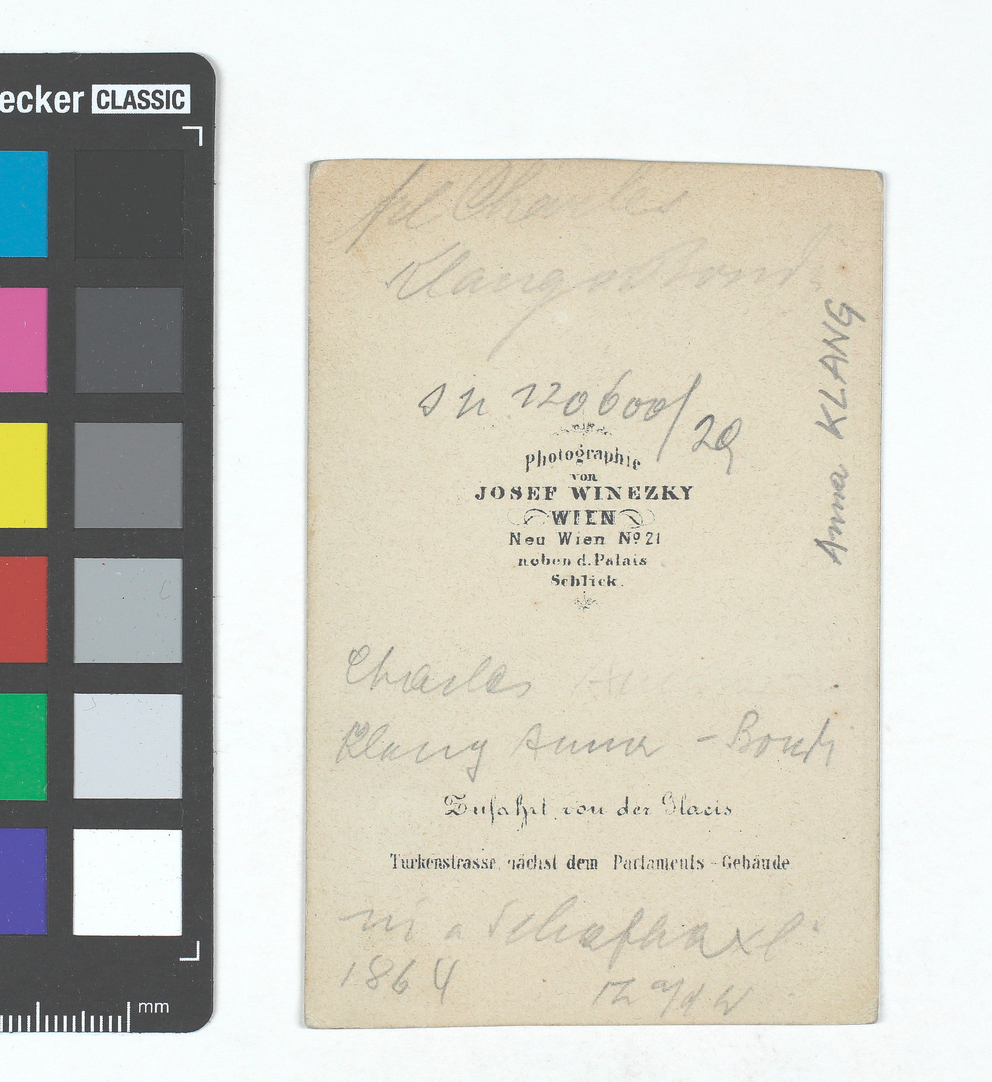 ecker CLASSIC
mm
Charles
Klang Bondi
SN 120600/29
Anna KLANG
Photographie
von
JOSEF WINEZKY
WIEN
Neu Wien No 21
neben d. Palais
Schlick.
Charles
Klang Anna - Bondi
Zufahrt von der Glacis
Türkenstrasse, nächst dem Parlaments-Gebäude
1864